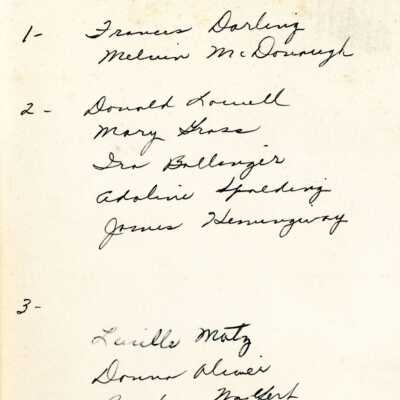 1- Frances Darling
Melvin McDonough
2- Donald Lowell
Mary Grass
Ira Ballenger
Adaline Spalding
James Hemingway
3-
Lucille Motz
Donna Oliver